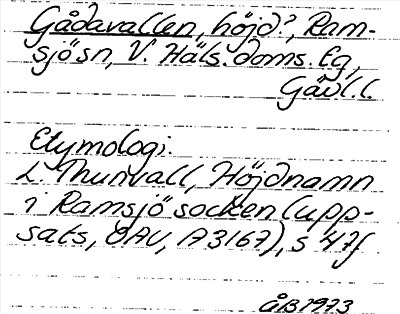 Gådavallen, höjd?, Ram-
sjö sn, V. Häls. doms. Eg,
Gävl. l.
Etymologi:
L. Thunvall, Höjdnamn
i Ramsjö socken (upp-
sats, OAU, A3167), s 47f
ÅB 1973